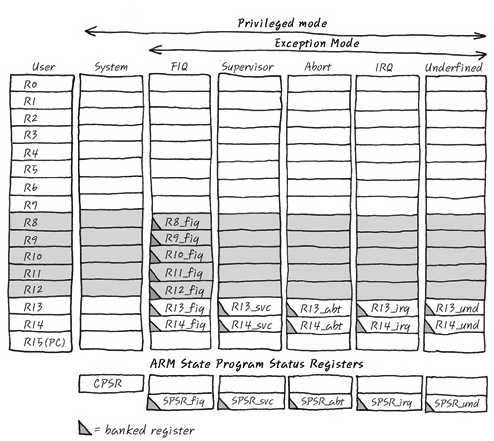 Privileged mode
Exception Mode
User System FIQ Supervisor Abort IRQ Undefined
R0
R1
R2
R3
R4
R5
R6
R7
R8 R8_fiq
R9 R9_fiq
R10 R10_fiq
R11 R11_fiq
R12 R12_fiq
R13 R13_fiq R13_svc R13_abt R13_irq R13_und
R14 R14_fiq R14_svc R14_abt R14_irq R14_und
R15(PC)
ARM State Program Status Registers
CPSR
SPSR_fiq SPSR_svc SPSR_abt SPSR_irq SPSR_und
= banked register